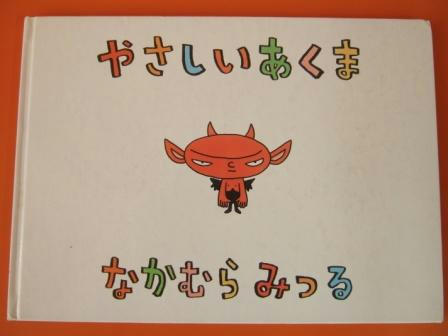 やさしいあくま
なかむら みつる